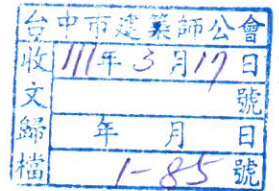 台中市建築師公會
收文 111年3月17日
號
歸檔 年 月 日
1-85號